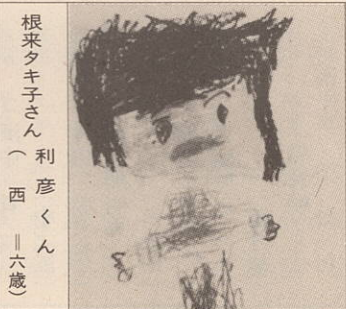 根来タキ子さん
利彦くん
（西＝六歳）